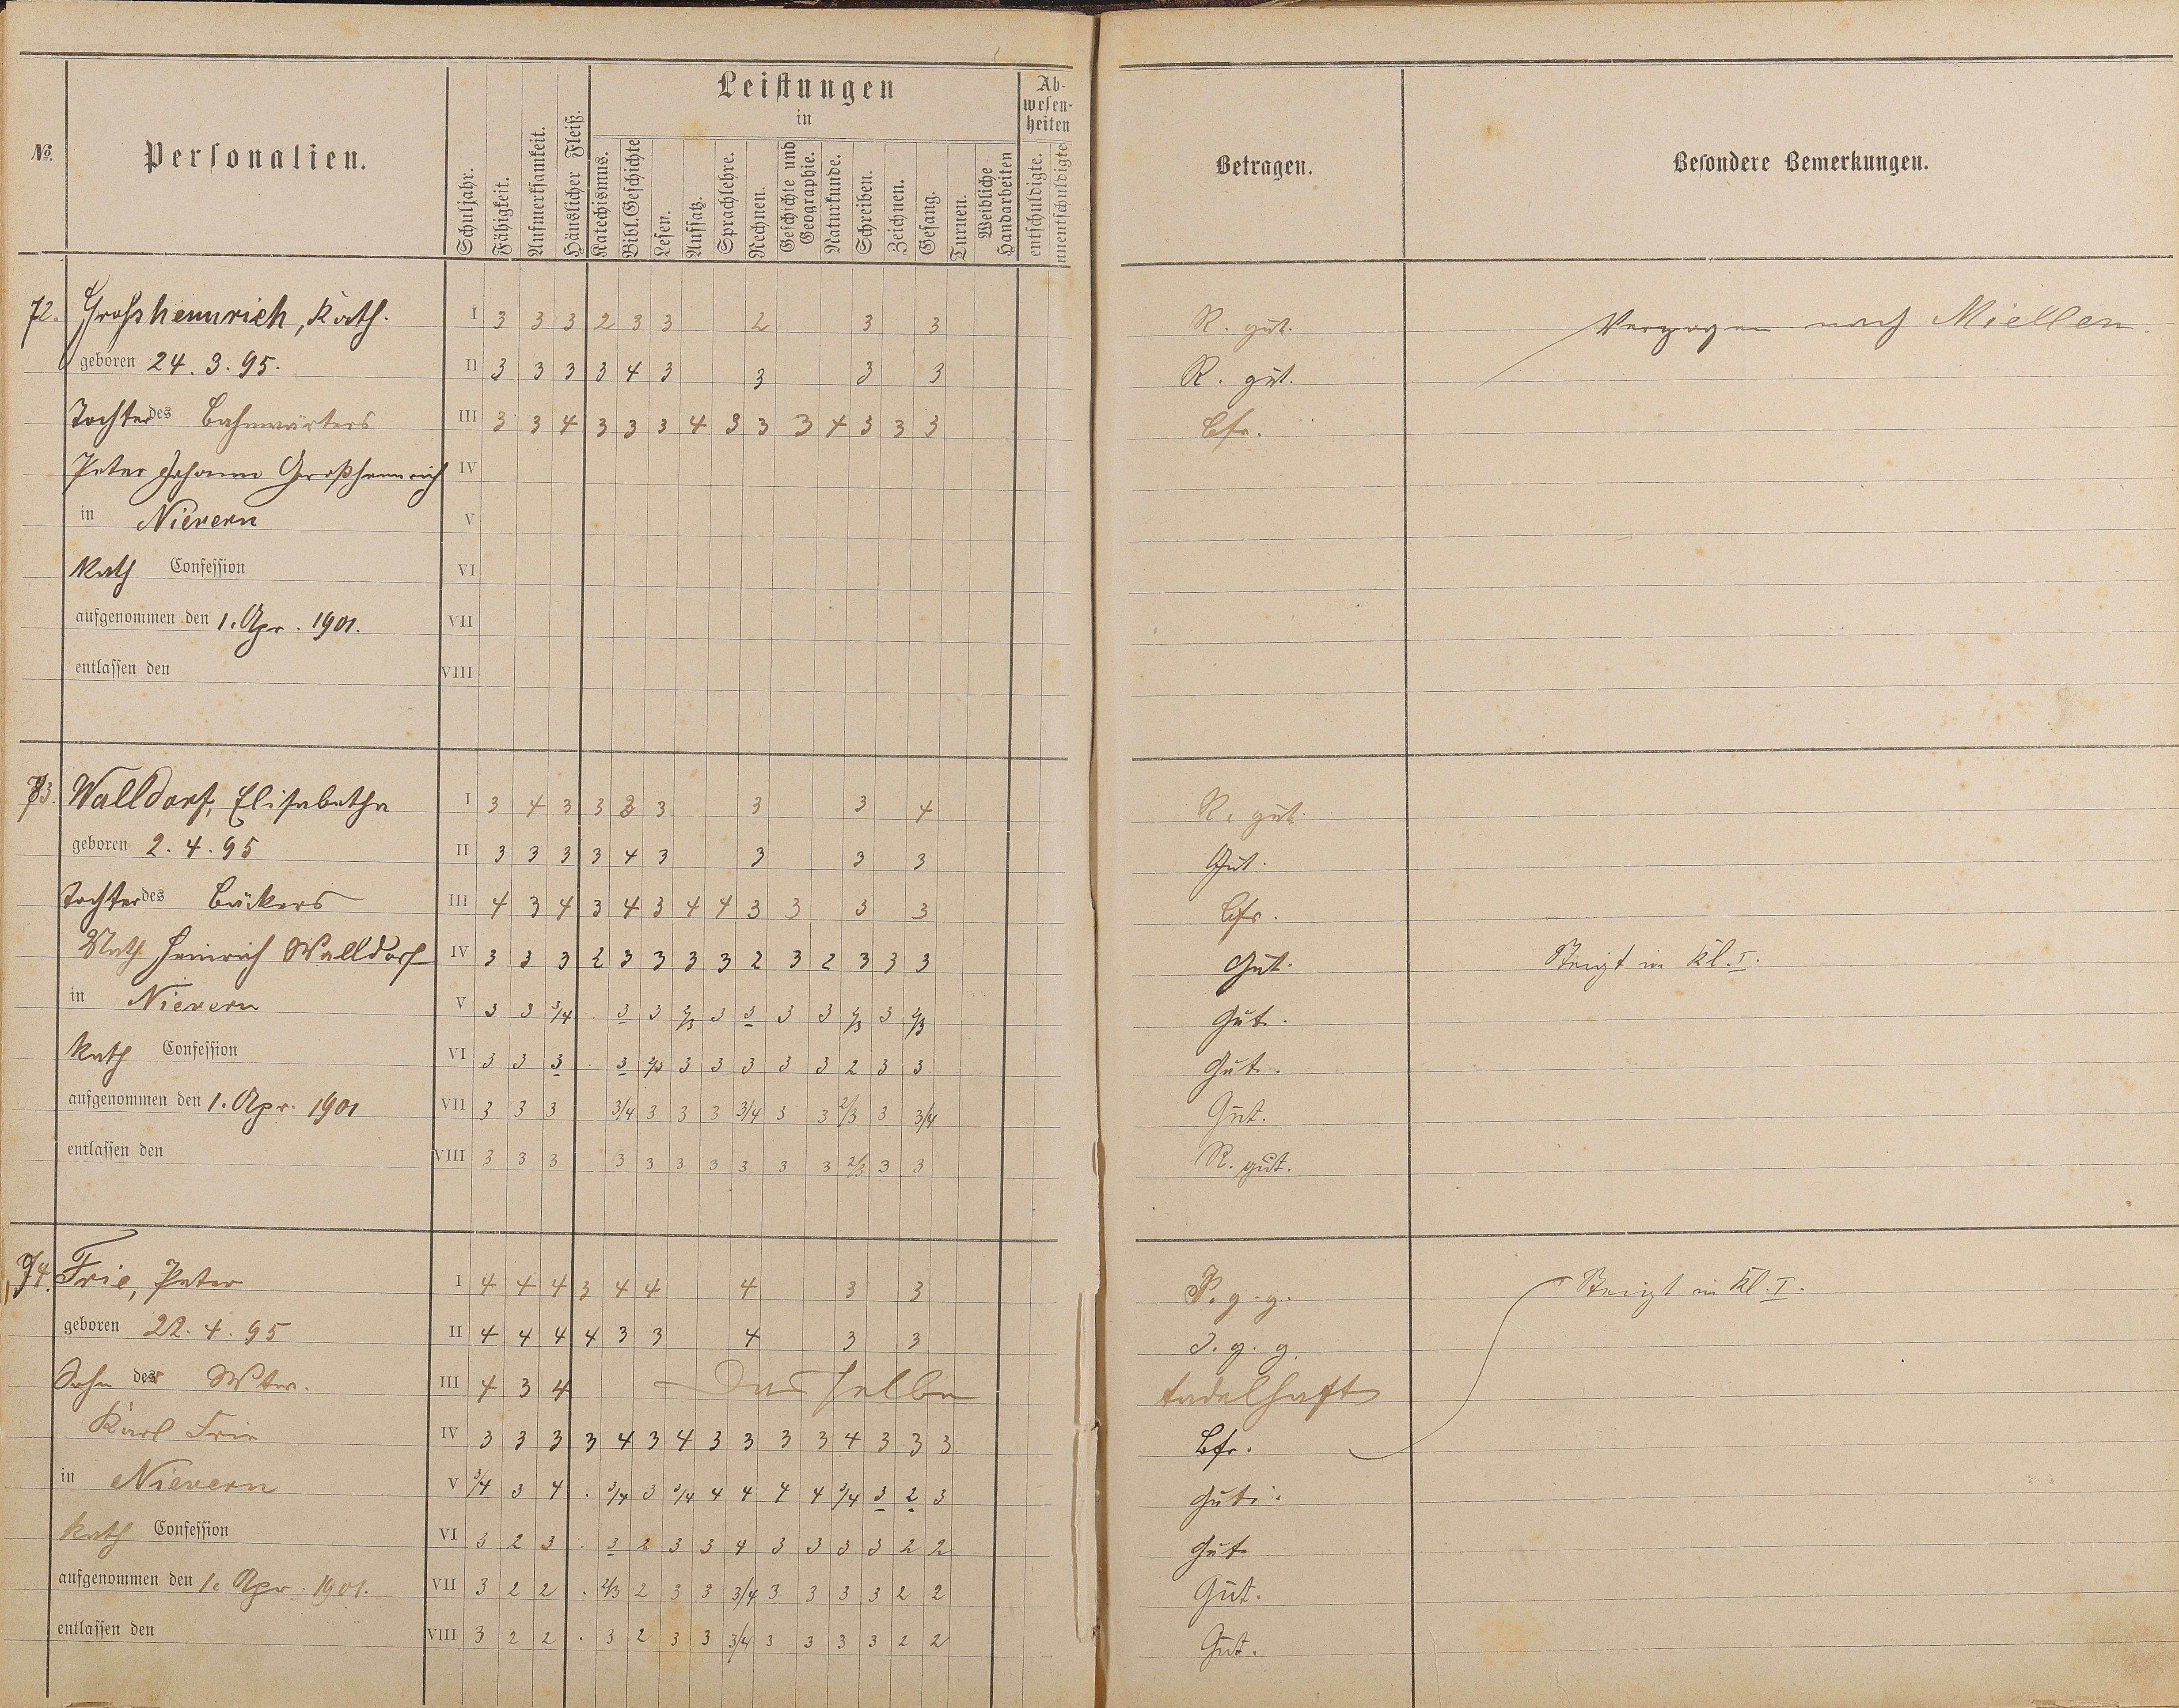 No. Personalien. Schuljahr. Fähigkeit. Aufmerksamkeit. Häuslicher Fleiß. Leistungen in Katechismus. Bibl. Geschichte Lesen. Aufsatz. Sprachlehre. Rechnen. Geschichte und Geographie. Naturkunde. Schreiben. Zeichnen. Gesang. Turnen. Weibliche Handarbeiten Abwesenheiten entschuldigte. unentschuldigte Betragen. Besondere Bemerkungen.
72. Großhennrich, Kath. I 3 3 3 2 3 3 2 3 3 R. gut. Verzogen nach Miellen.
geboren 24. 3. 95. II 3 3 3 3 4 3 3 3 3 R. gut.
Tochter des Bahnwärters III 3 3 4 3 3 3 4 3 3 3 4 3 3 3 Bfr.
Peter Johann Großhennrich IV
in Nievern V
Kath Confession VI
aufgenommen den 1. Apr. 1901. VII
entlassen den VIII
73. Walldorf, Elisabetha I 3 4 3 3 3 3 3 3 4 R. gut.
geboren 2. 4. 95 II 3 3 3 3 4 3 3 3 3 Gut.
Tochter des Bäckers III 4 3 4 3 4 3 4 4 3 3 3 3 Bfr.
Math. Heinrich Walldorf IV 3 3 3 2 3 3 3 3 2 3 2 3 3 3 Gut. Steigt in Kl. I.
in Nievern V 3 3 3/4 . 3 3 2/3 3 3 3 3 2/3 3 2/3 Gut.
Kath Confession VI 3 3 3 . 3 2/3 3 3 3 3 3 2 3 3 Gut.
aufgenommen den 1. Apr. 1901 VII 3 3 3 3/4 3 3 3 3/4 3 3 2/3 3 3/4 Gut.
entlassen den VIII 3 3 3 3 3 3 3 3 3 3 2/3 3 3 R. gut.
74. Frie, Peter I 4 4 4 3 4 4 4 3 3 Steigt in Kl. I.
geboren 22. 4. 95 II 4 4 4 4 3 3 4 3 3 J. g. g.
Sohn des Wtw. III 4 3 4 Dasselbe tadelhaft
Karl Frie IV 3 3 3 3 4 3 4 3 3 3 3 4 3 3 3 Bfr.
in Nievern V 3/4 3 4 . 3/4 3 3/4 4 4 4 4 3/4 3 2 3 Gut.
Kath Confession VI 3 2 3 . 3 2 3 3 4 3 3 3 3 2 2 Gut
aufgenommen den 1. Apr. 1901. VII 3 2 2 . 2/3 2 3 3 3/4 3 3 3 3 2 2 Gut.
entlassen den VIII 3 2 2 . 3 2 3 3 3/4 3 3 3 3 2 2 Gut.